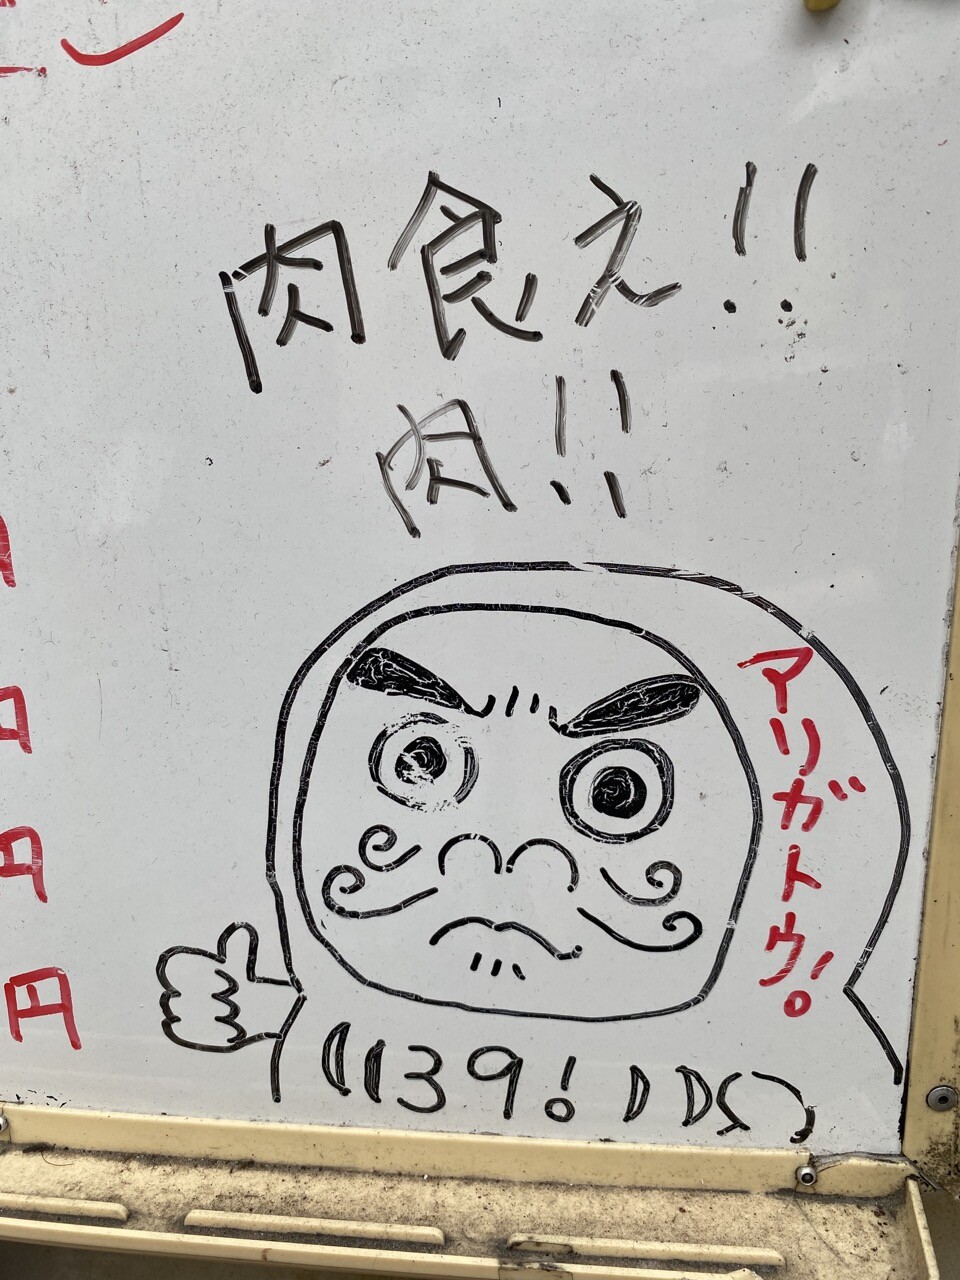 肉食え!!
肉!!
アリガトウ!
39!
円
円
円